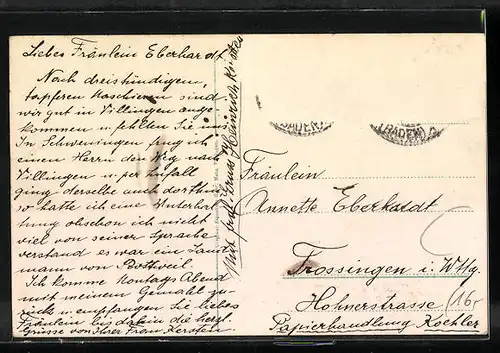 Liebes Fräulein Eberhardt
Nach dreistündigen,
tapferen Maschieren sind
wir gut in Villingen ange-
kommen u. fehlten Sie uns
In Schwenningen frug ich
einen Herrn den Weg nach
Villingen u. per Zufall
ging derselbe auch dorthin
so hatte ich eine Unterhal-
tung obschon ich nicht
viel von seiner Sprache
verstand es war ein Lands
mann von Rottweil.
Ich komme Montag Abend
mit meinem Gemahl zu-
rück u. empfangen Sie liebes
Fräulein bis dahin die herzl.
Grüsse von Ihrer Frau Kersten
Heinrich Kersten
(BADEN)
(BADEN)
Fräulein
Annette Eberhardt
Trossingen i. Wttg.
Hohnerstrasse
Papierhandlung Koehler
16,-